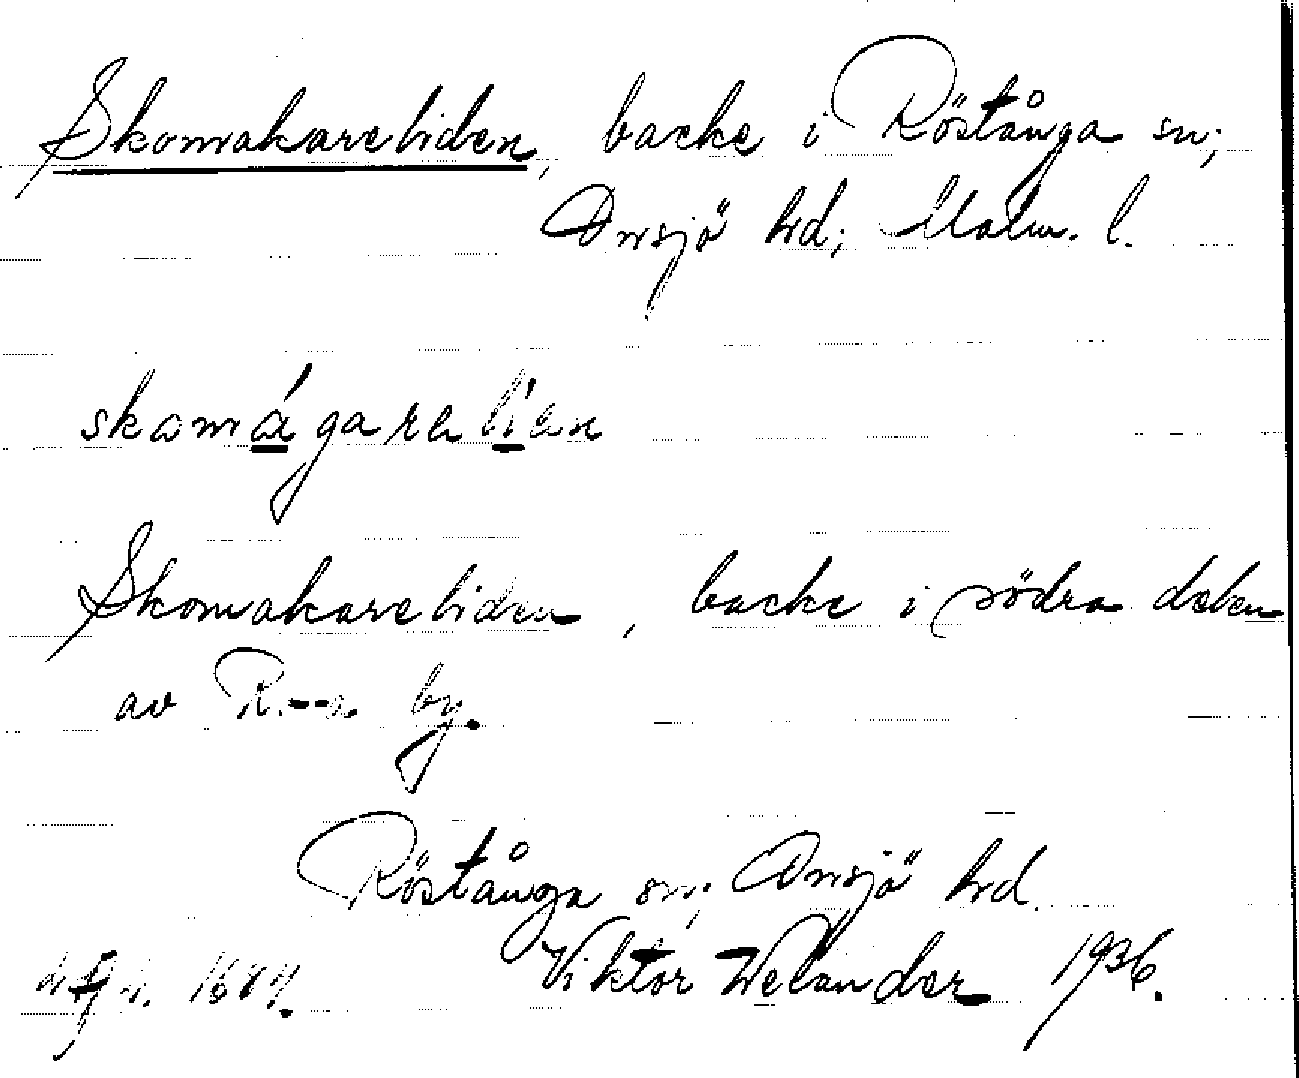 Skomakareliden, backe i Röstånga sn;
Onsjö hd; Malm. l.
skomágare líen
Skomakareliden, backe i södra delen
av R--a by.
Röstånga sn; Onsjö hd.
Viktor Welander 1936.